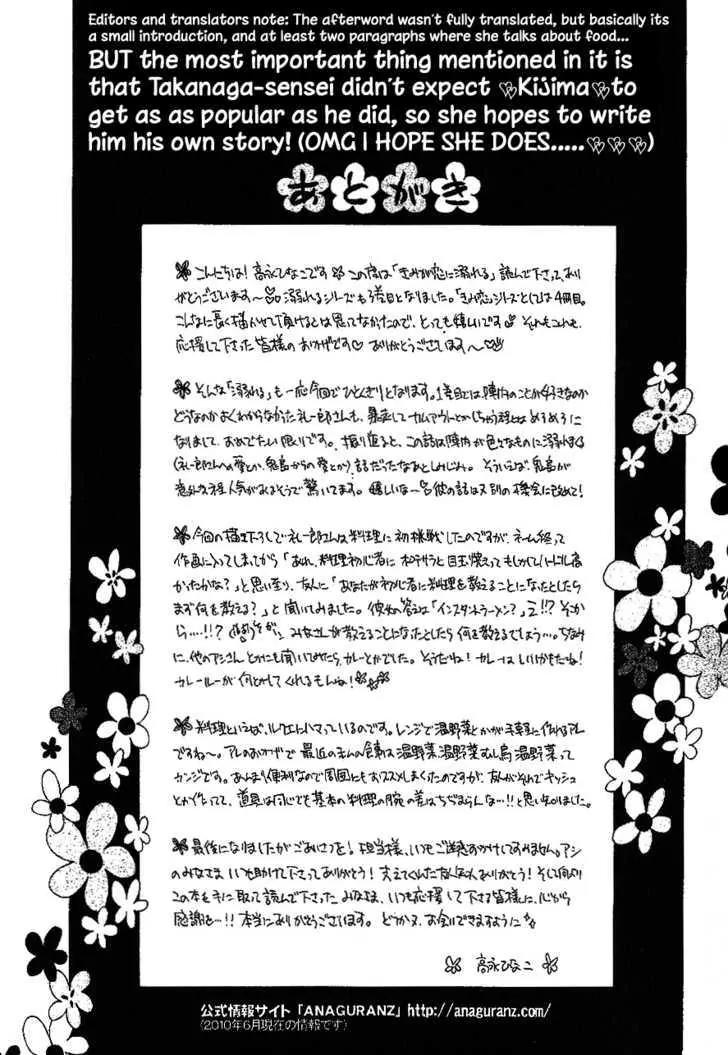 Editors and translators note: The afterword wasn't fully translated, but basically its
a small introduction, and at least two paragraphs where she talks about food...
BUT the most important thing mentioned in it is
that Takanaga-sensei didn't expect Kijima to
get as as popular as he did, so she hopes to write
him his own story! (OMG I HOPE SHE DOES.....)
あとがき
こんにちは! 高永ひなこです この度は「きみが恋に溺れる」読んで下さって、あり
がとうございます〜 溺れるシリーズも3巻目となりました。「きみ恋」シリーズとしては4冊目。
こんなに長く描かせて頂けるとは思ってなかったので、とっても嬉しいです それもこれも、
応援して下さった皆様のおかげです ありがとうございます〜
そんな「溺れる」も一応今回でひとくぎりとなります。1巻目では陣内のことが好きなのか
どうなのかよくわからなかった礼一郎さんも、暴走してカムアウトとかしちゃう程にはめろめろに
なりまして、おめでたい限りです。振り返ると、この話は陣内が色々なものに溺れまくる
(礼一郎さんへの愛とか、鬼島からの愛とか) 話だったなあとしみじみ。そういえば、鬼島が
意外な程人気があるそうで驚いてます。嬉しいな〜 彼の話はまた別の機会に改めて!
今回の描き下ろしで礼一郎さんは料理に初挑戦したのですが、ネーム終って
作画に入ってしまってから「あれ、料理初心者に ポテサラと目玉焼きってもしかしてハードル高
かったかな?」と思い至り、友人に「あなたが初心者に料理を教えることになったとしたら
まず何を教える?」と聞いてみました。彼女の答えは「インスタントラーメン?」えっ!!? そこか
ら…!!? みなさんが教えることになったとしたら何を教えるでしょう…。ちなみ
に、他のアシさんとかにも聞いてみたらカレーとかでした。そうだね! カレーはいいかもだね!
カレールーが何とかしてくれるもんね!
料理といえば、ルクエにハマっているのです。レンジで温野菜とかが手軽に作れるアレ
ですね〜。アレのおかげで最近のまんべん 温野菜温野菜むし鳥温野菜って
カンジです。あんまり便利なので周囲にもおススメしまくったのですが、友人がそれでキッシュ
とか作ってて、道具は同じでも基本の料理の腕の差はちぢまらんな…!! と思い知りました。
最後になりましたがごあいさつを! 担当様、いつもご迷惑おかけしてすみません。アシ
のみなさま いつも助けて下さってありがとう! 支えてくれた友人もありがとう! そして何より
この本を手に取って読んで下さったみなさま、いつも応援して下さる皆様に、心から
感謝を…!! 本当にありがとうございます。どうかまた お会いできますように
高永ひなこ
公式情報サイト「ANAGURANZ」http://anaguranz.com/
(2010年6月現在の情報です)